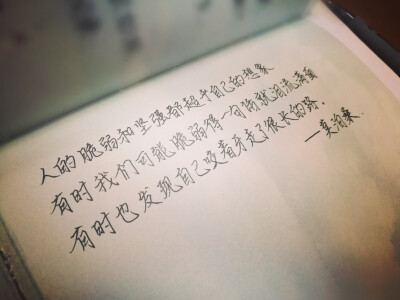 人的脆弱和坚强都超乎自己的想象
有时我们可能脆弱得一句话就泪流满面
有时也发现自己咬着牙走了很长的路。